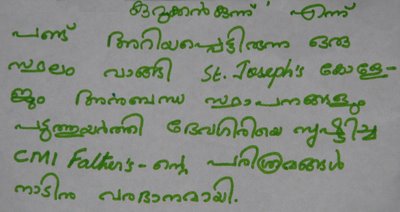 കുറുക്കൻകുന്ന് ' എന്ന്
പണ്ട് അറിയപ്പെട്ടിരുന്ന ഒരു
സ്ഥലം വാങ്ങി St. Joseph's കോളേ-
ജും അനുബന്ധ സ്ഥാപനങ്ങളും
പടുത്തുയർത്തി ദേവഗിരിയെ സൃഷ്ടിച്ച
CMI Father's-ന്റെ പരിശ്രമങ്ങൾ
നാടിനു വരദാനമായി.